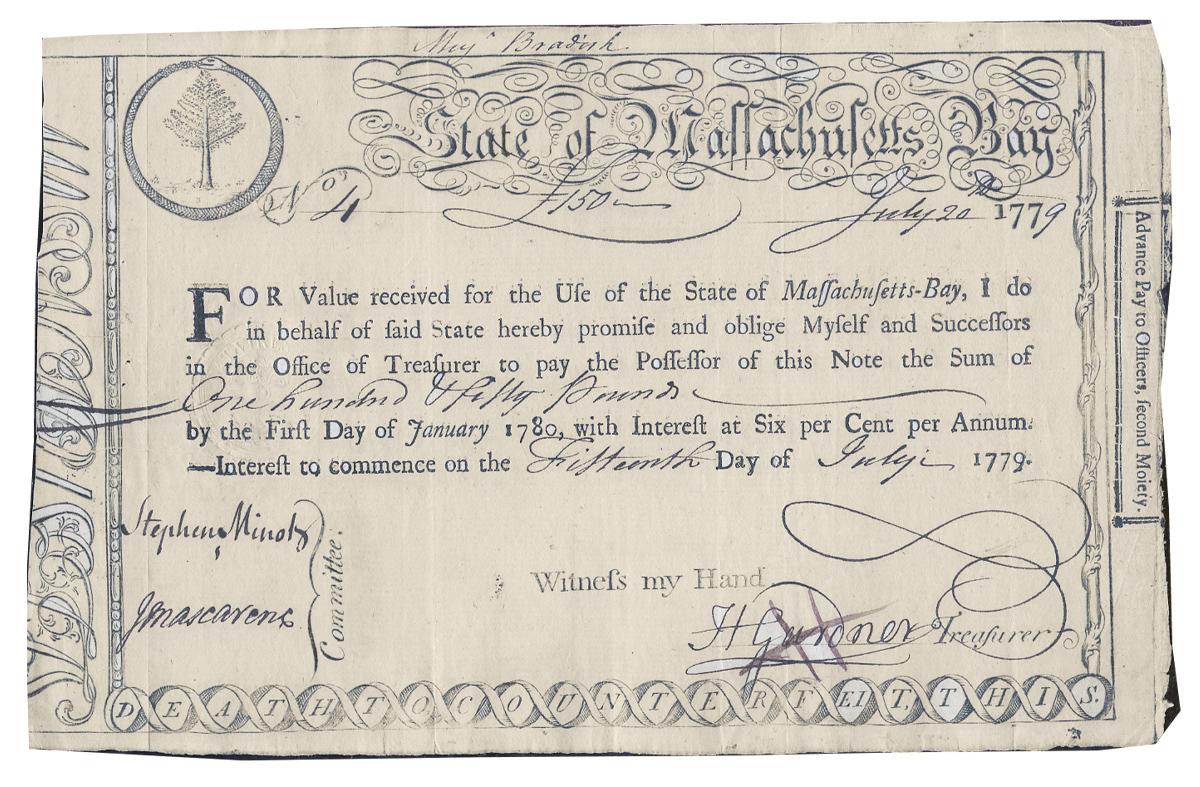 Maj.ʳ Bradish.
State of Maſſachuſetts Bay.
Nº 4 £150 July 20th 1779
FOR Value received for the Uſe of the State of Maſſachuſetts-Bay, I do
in behalf of ſaid State hereby promiſe and oblige Myſelf and Succeſſors
in the Office of Treaſurer to pay the Poſſeſſor of this Note the Sum of
One hundred & Fifty Pounds
by the Firſt Day of January 1780, with Intereſt at Six per Cent per Annum.
—Intereſt to commence on the Fifteenth Day of July 1779.
Stephen Minot
J Mascarene
Committee.
Witneſs my Hand
H Gardner Treaſurer
DEATH TO COUNTERFEIT, THIS.
Advance Pay to Officers, ſecond Moiety.